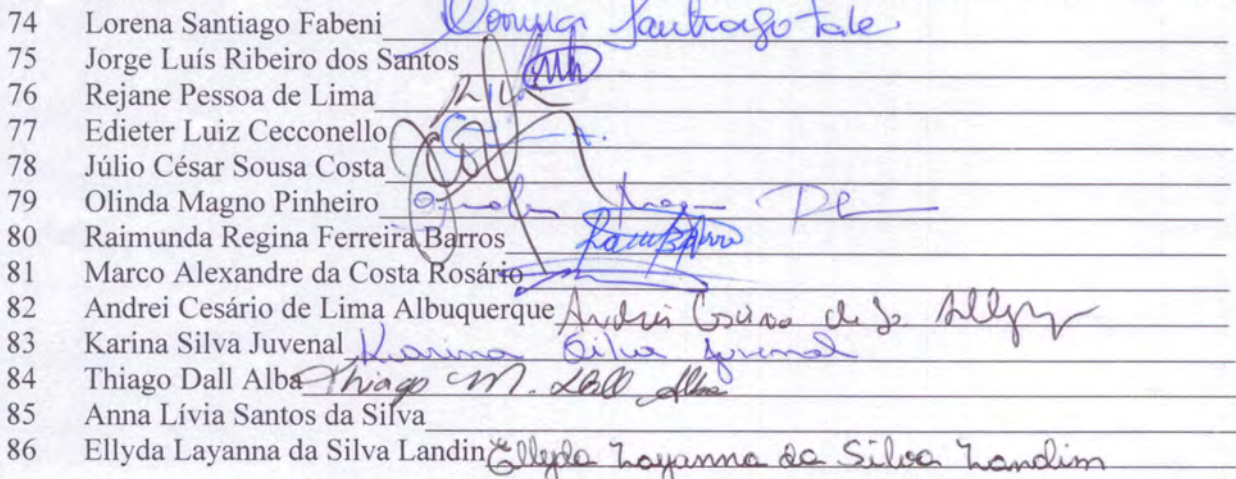 74 Lorena Santiago Fabeni Santiago
75 Jorge Luís Ribeiro dos Santos
76 Rejane Pessoa de Lima
77 Edieter Luiz Cecconello
78 Júlio César Sousa Costa
79 Olinda Magno Pinheiro
80 Raimunda Regina Ferreira Barros
81 Marco Alexandre da Costa Rosário
82 Andrei Cesário de Lima Albuquerque Andrei
83 Karina Silva Juvenal Karina Silva Juvenal
84 Thiago Dall Alba Thiago M. Dall Alba
85 Anna Lívia Santos da Silva
86 Ellyda Layanna da Silva Landin Ellyda Layanna da Silva Landim